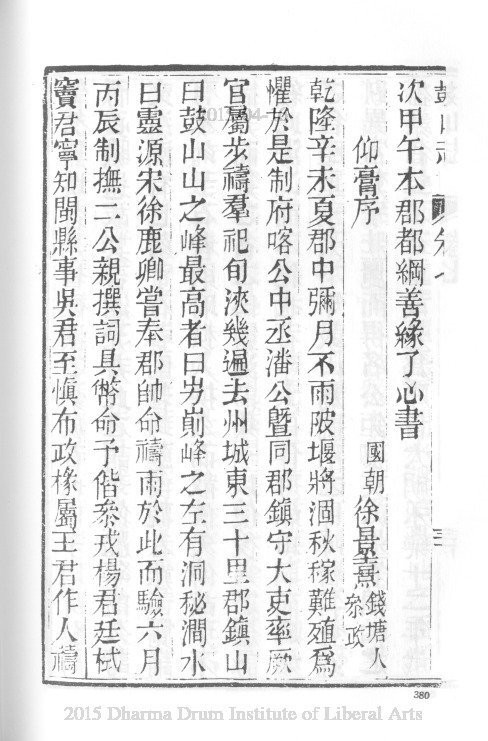 鼓山志 卷七
次甲午本郡都綱善緣了心書
仰膏序
國朝徐景熹錢塘人參政
乾隆辛未夏郡中彌月不雨陂堰將涸秋稼難殖爲
懼於是制府喀公中丞潘公暨同郡鎭守大吏率厥
官屬步禱羣祀旬浹幾遍去州城東三十里郡鎭山
曰鼓山山之峰最高者曰屴崱峰之左有洞秘澗水
曰靈源宋徐鹿卿嘗奉郡帥命禱雨於此而驗六月
丙辰制撫二公親撰詞具幣命予偕叅戎楊君廷栻
竇君寧知閩縣事吳君至愼布政椽屬王君作人禱
380
2015 Dharma Drum Institute of Liberal Arts